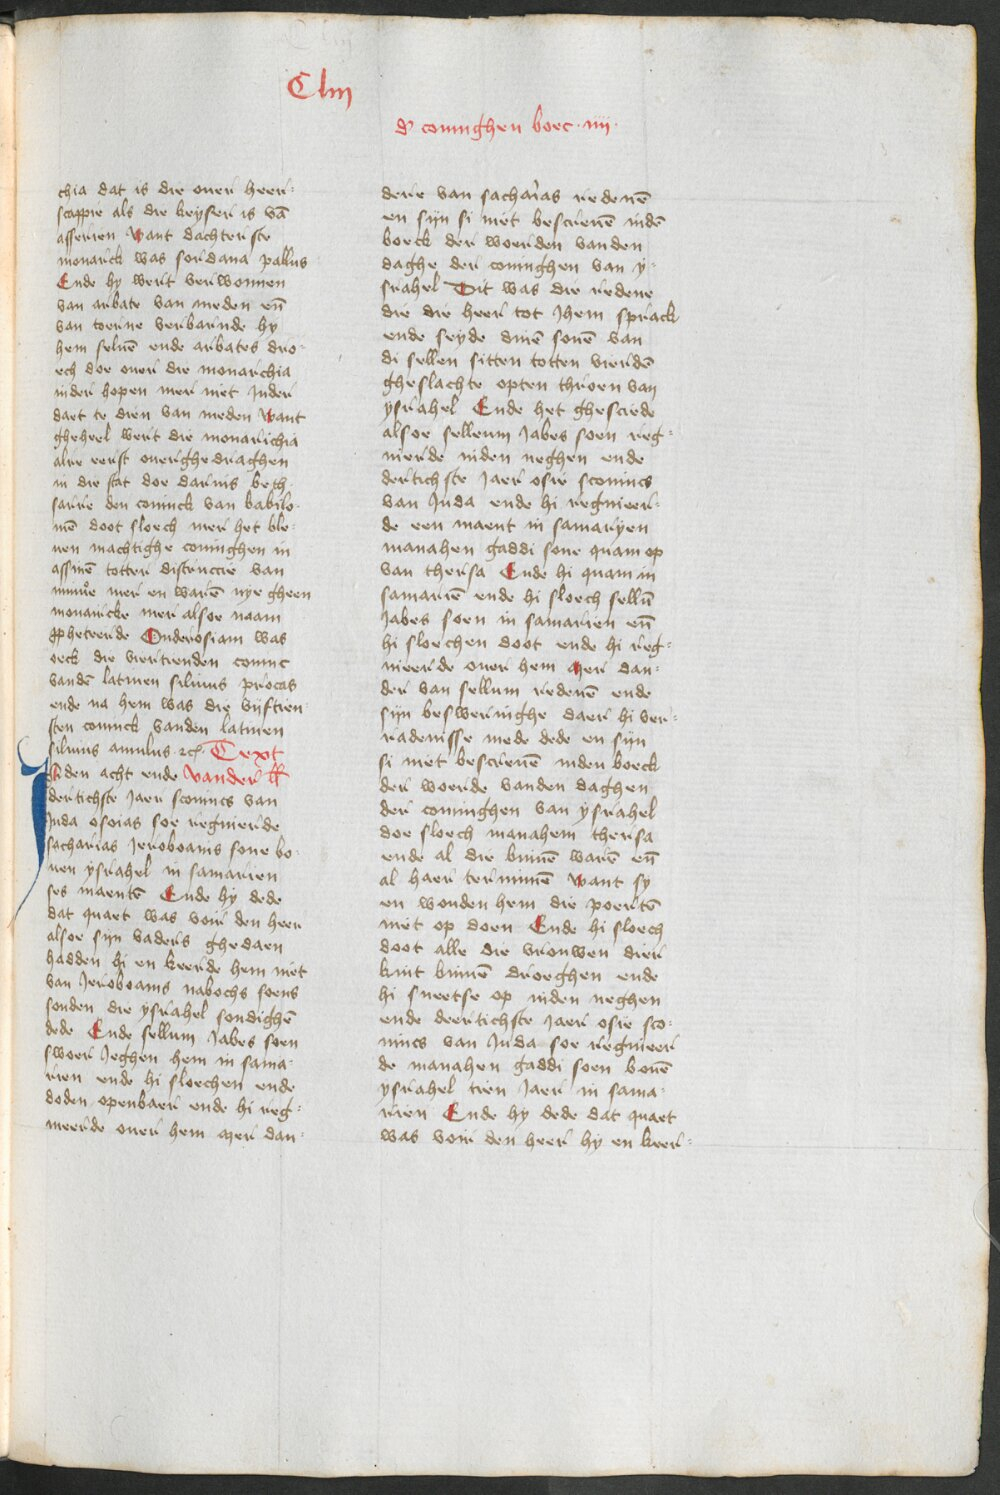 Clııȷ
d' coninghen boec · iiii ·
chia dat is die ouer heer-
scappie als die keyser is vā
asserien Want dachterste
monarck was sordana pallus
Ende hy wert verwonnen
van arbate van meden eñ
van toerne verbarnde hy
hem seluē ende arbates dro-
ech doe ouer die monarchia
inder hopen mer niet inder
daet te dien van meden Want
gheheel wert die monarichia
alre eerst ouerghedraghen
in die stat doe darius beth
sarre den coninck van babilo-
niē doot sloech mer het ble-
uen machtighe coninghen in
assiriē totter distruccie van
niniue mer en warē nye gheen
monarcke mer alsoe naam
gheheerde Onder osiam was
oeck die viertienden coninc
vandē latinen siluius procas
ende na hem was die vijftien-
sten coninck vanden latinen
siluius amulus etc Text
INden acht ende vander
dertichste jaer sconincs van
Juda osoias soe regnierde
sacharias Jeroboams sone bo-
uen ysrahel in samarien
ses maentē Ende hy dede
dat quaet was voir den heer
alsoe sijn vaders ghedaen
hadden hi en keerde hem niet
van Jeroboams nabochs soens
sonden die ysrahel sondighē
dede Ende sellum Jabes soen
swoer Jeghen hem in sama-
rien ende hi sloechen ende
doden openbaer ende hi reg-
neerde ouer hem Mer dan-
dere van sacharias redenē
en sijn si niet bescreuē indē
boeck der woerden vanden
daghe der coninghen van y-
srahel Dit was die redene
die die heer tot Jhem sprack
ende seyde dinē sonē van
di sellen sitten totten vierdē
gheslachte opten throen van
ysrahel Ende het ghesciede
alsoe selleum Jabes soen reg-
nierde inden neghen ende
dertichste Jaer osie sconincs
van Juda ende hi regnieer-
de een maent in samaryen
manahen gaddi sone quam op
van thersa Ende hi quam in
samariē ende hi sloech sellū
Jabes soen in samarien eñ
hi sloechen doot ende hi reg-
nieerde ouer hem Mer dan-
der van sellum redenē ende
sijn besweringhe daer hi ver-
radenisse mede dede en sijn
si niet bescreuē inden boeck
der woerde vanden daghen
der coninghen van ysrahel
doe sloech manahem thersa
ende al die binnē warē eñ
al haer terminnē Want sy
en wonden hem die poertē
niet op doen Ende hi sloech
doot alle die vrouwen dier
kint binnē droeghen ende
hi sneetse op inden neghen
ende deertichste Jaer osie sco-
nincs van Juda soe regnieer
de manahen gaddi soen bouē
ysrahel tien Jaer in sama-
rien Ende hy dede dat quaet
was voir den heer hy en keer-